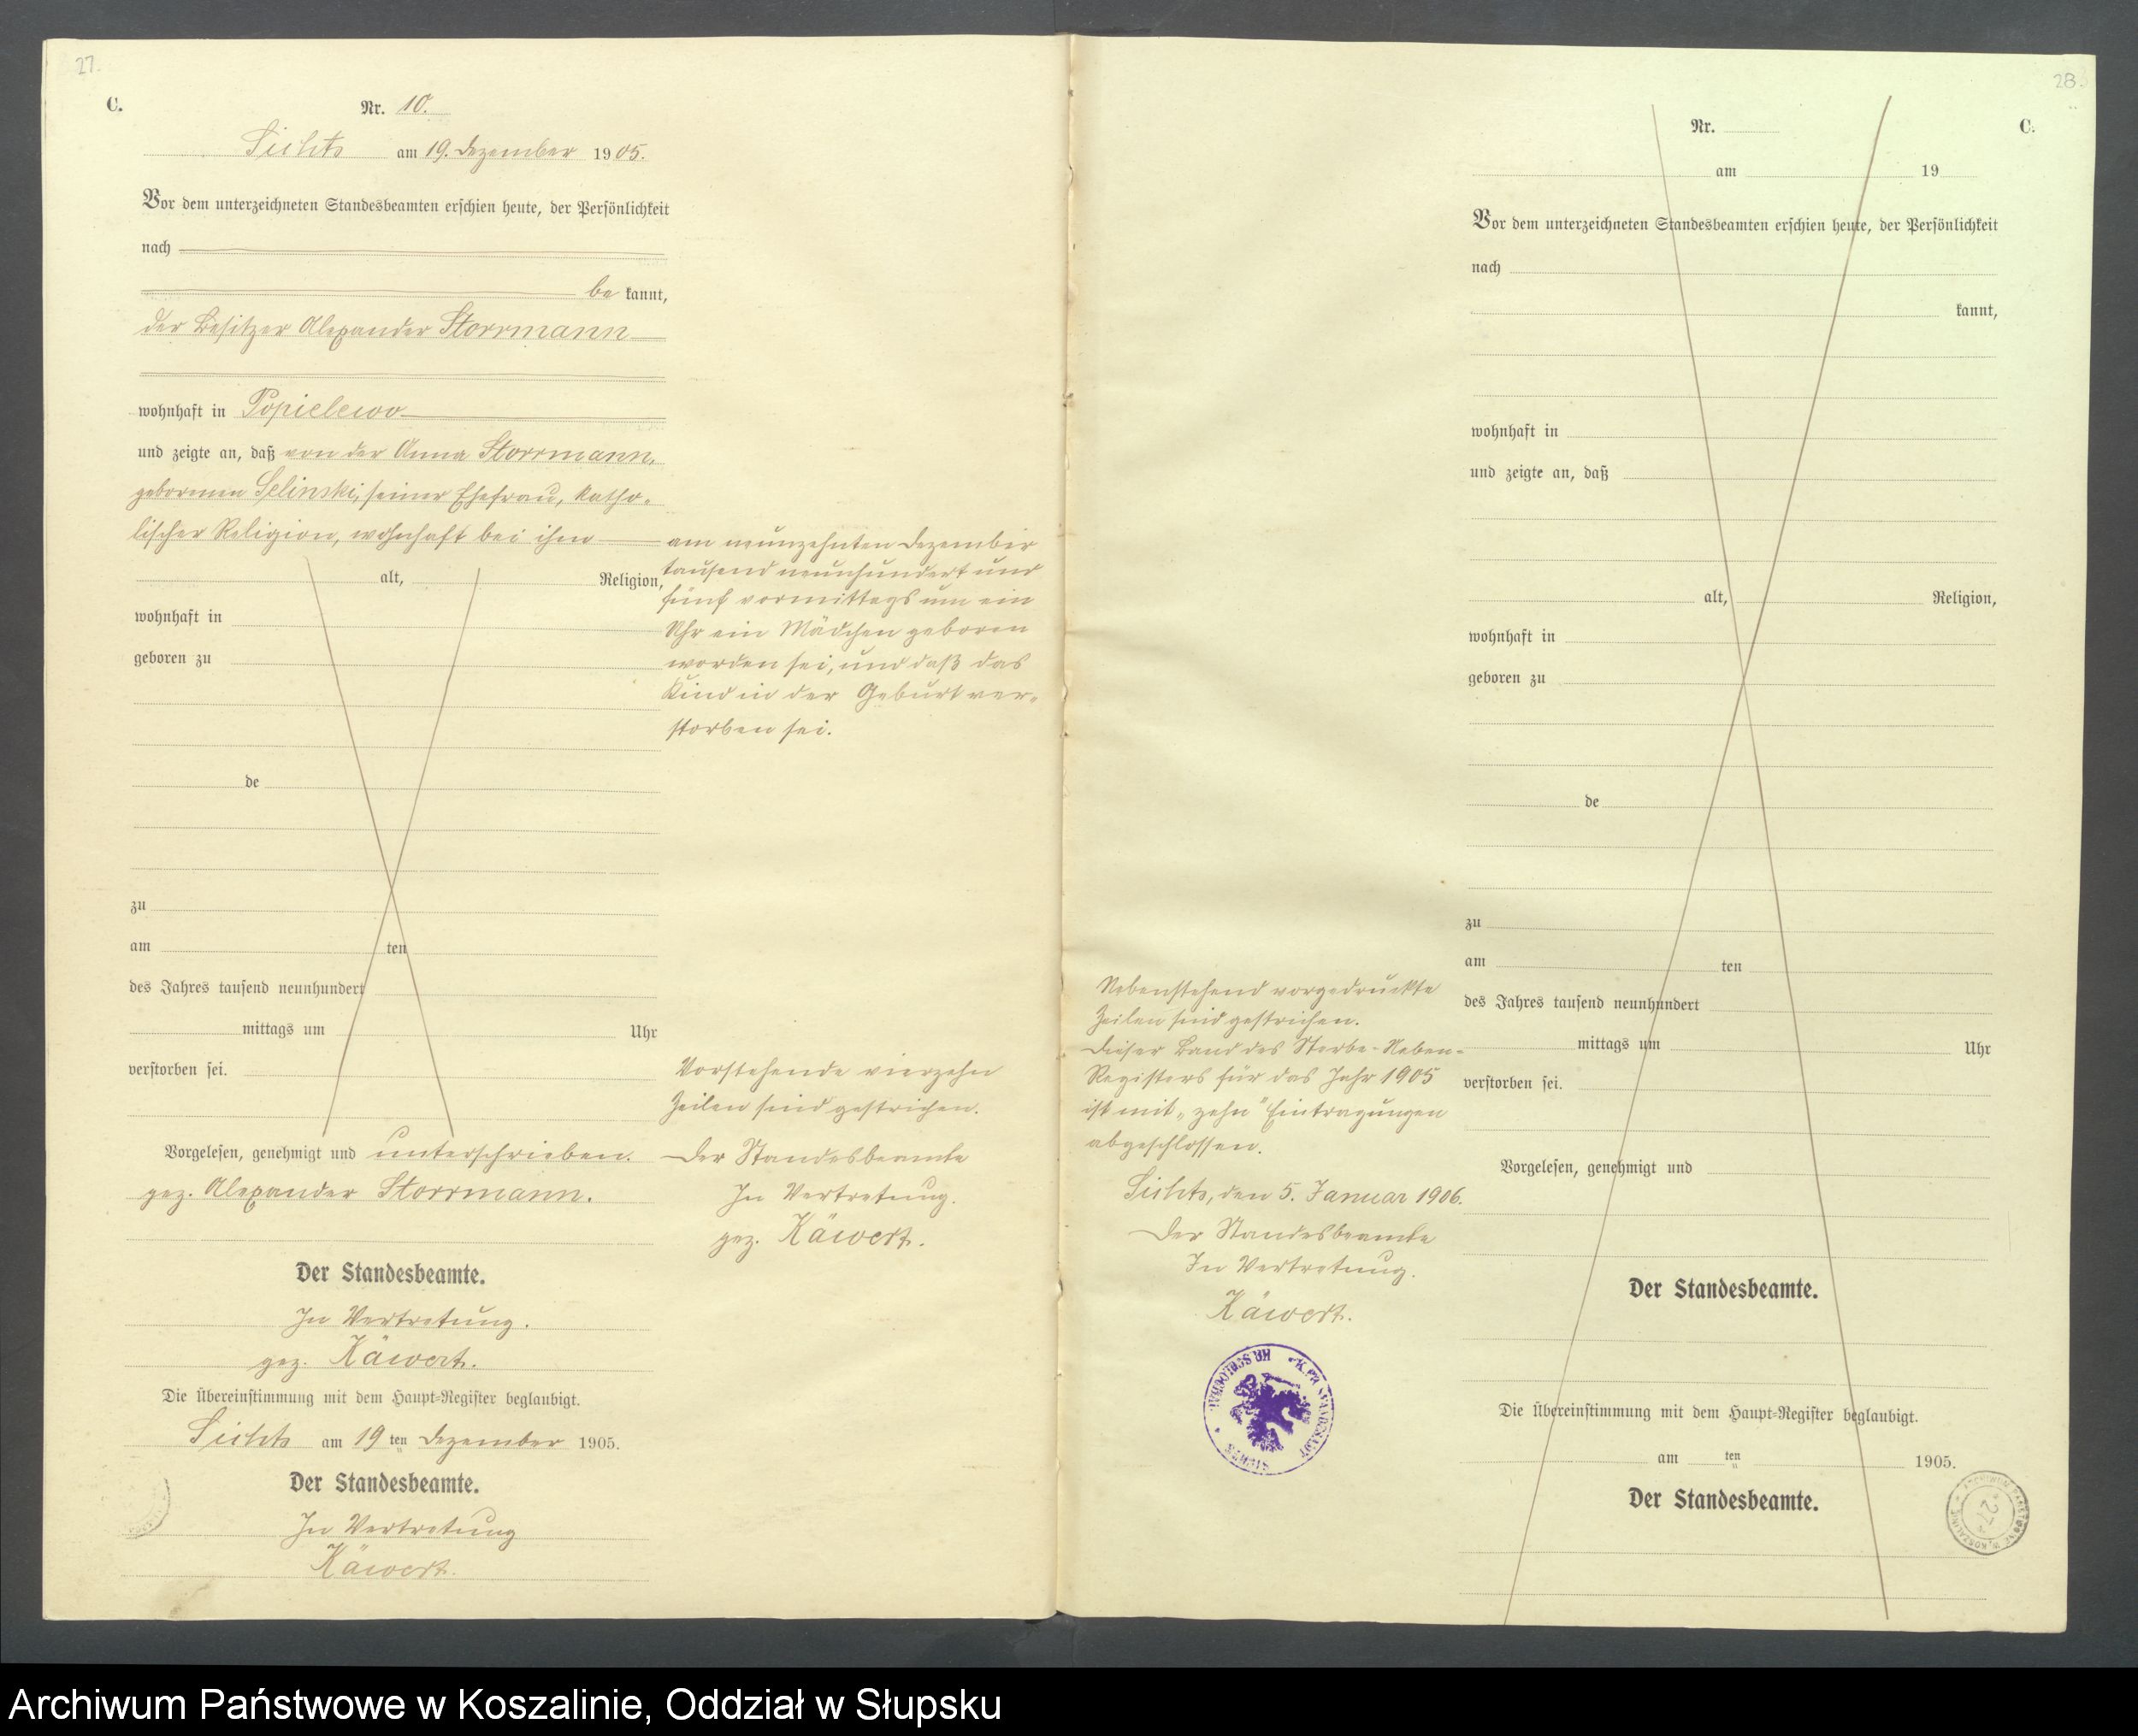 27.
C.
Nr. 10.
Sichts am 19. Dezember 1905.
Vor dem unterzeichneten Standesbeamten erschien heute, der Persönlichkeit
nach
be kannt,
der Besitzer Alexander Storrmann
wohnhaft in Popielewo
und zeigte an, daß von der Anna Storrmann,
geborenen Selinski, seiner Ehefrau, katho-
lischer Religion, wohnhaft bei ihm
alt, Religion,
wohnhaft in
geboren zu
de
zu
am ten
des Jahres tausend neunhundert
mittags um Uhr
verstorben sei.
am neunzehnten Dezember
tausend neunhundert und
fünf vormittags um ein
Uhr ein Mädchen geboren
worden sei, und daß das
Kind in der Geburt ver-
storben sei.
Vorstehende vierzehn
Zeilen sind gestrichen.
Der Standesbeamte
In Vertretung.
gez. Käwert.
Vorgelesen, genehmigt und unterschrieben.
gez. Alexander Storrmann.
Der Standesbeamte.
In Vertretung.
gez. Käwert.
Die Übereinstimmung mit dem Haupt-Register beglaubigt.
Sichts am 19 ten Dezember 1905.
Der Standesbeamte.
In Vertretung
Käwert.
28.
C.
Nr.
am 19
Vor dem unterzeichneten Standesbeamten erschien heute, der Persönlichkeit
nach
kannt,
wohnhaft in
und zeigte an, daß
alt, Religion,
wohnhaft in
geboren zu
de
zu
am ten
des Jahres tausend neunhundert
mittags um Uhr
verstorben sei.
Nebenstehend vorgedruckte
Zeilen sind gestrichen.
Dieser Band des Sterbe-Neben-
Registers für das Jahr 1905
ist mit „zehn" Eintragungen
abgeschlossen.
Sichts, den 5. Januar 1906.
Der Standesbeamte
In Vertretung.
Käwert.
Vorgelesen, genehmigt und
Der Standesbeamte.
Die Übereinstimmung mit dem Haupt-Register beglaubigt.
am ten 1905.
Der Standesbeamte.
ARCHIWUM PAŃSTWOWE W KOSZALINIE
27
Archiwum Państwowe w Koszalinie, Oddział w Słupsku